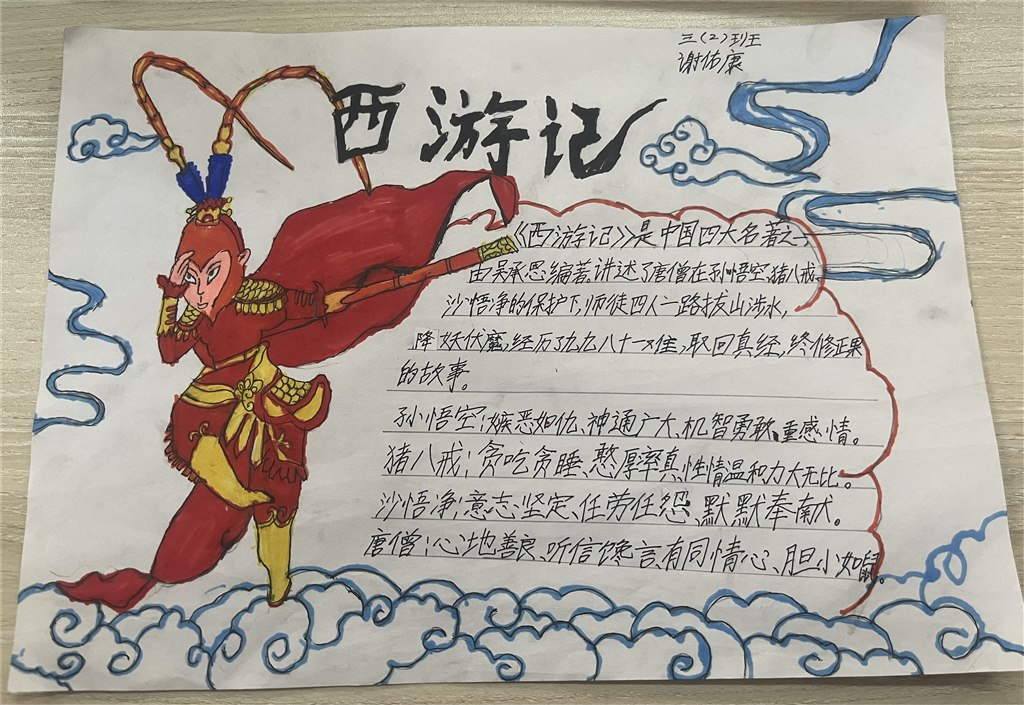 三(2)班
谢佑康
西游记
《西游记》是中国四大名著之一
由吴承恩编著.讲述了唐僧在孙悟空,猪八戒、
沙悟净的保护下,师徒四人一路拔山涉水,
降妖伏魔,经历了九九八十一难,取回真经,终修正果
的故事。
孙悟空:嫉恶如仇、神通广大、机智勇敢、重感情。
猪八戒:贪吃贪睡、憨厚率真,性情温和力大无比。
沙悟净:意志坚定、任劳任怨、默默奉献。
唐僧:心地善良、听信馋言、有同情心、胆小如鼠。